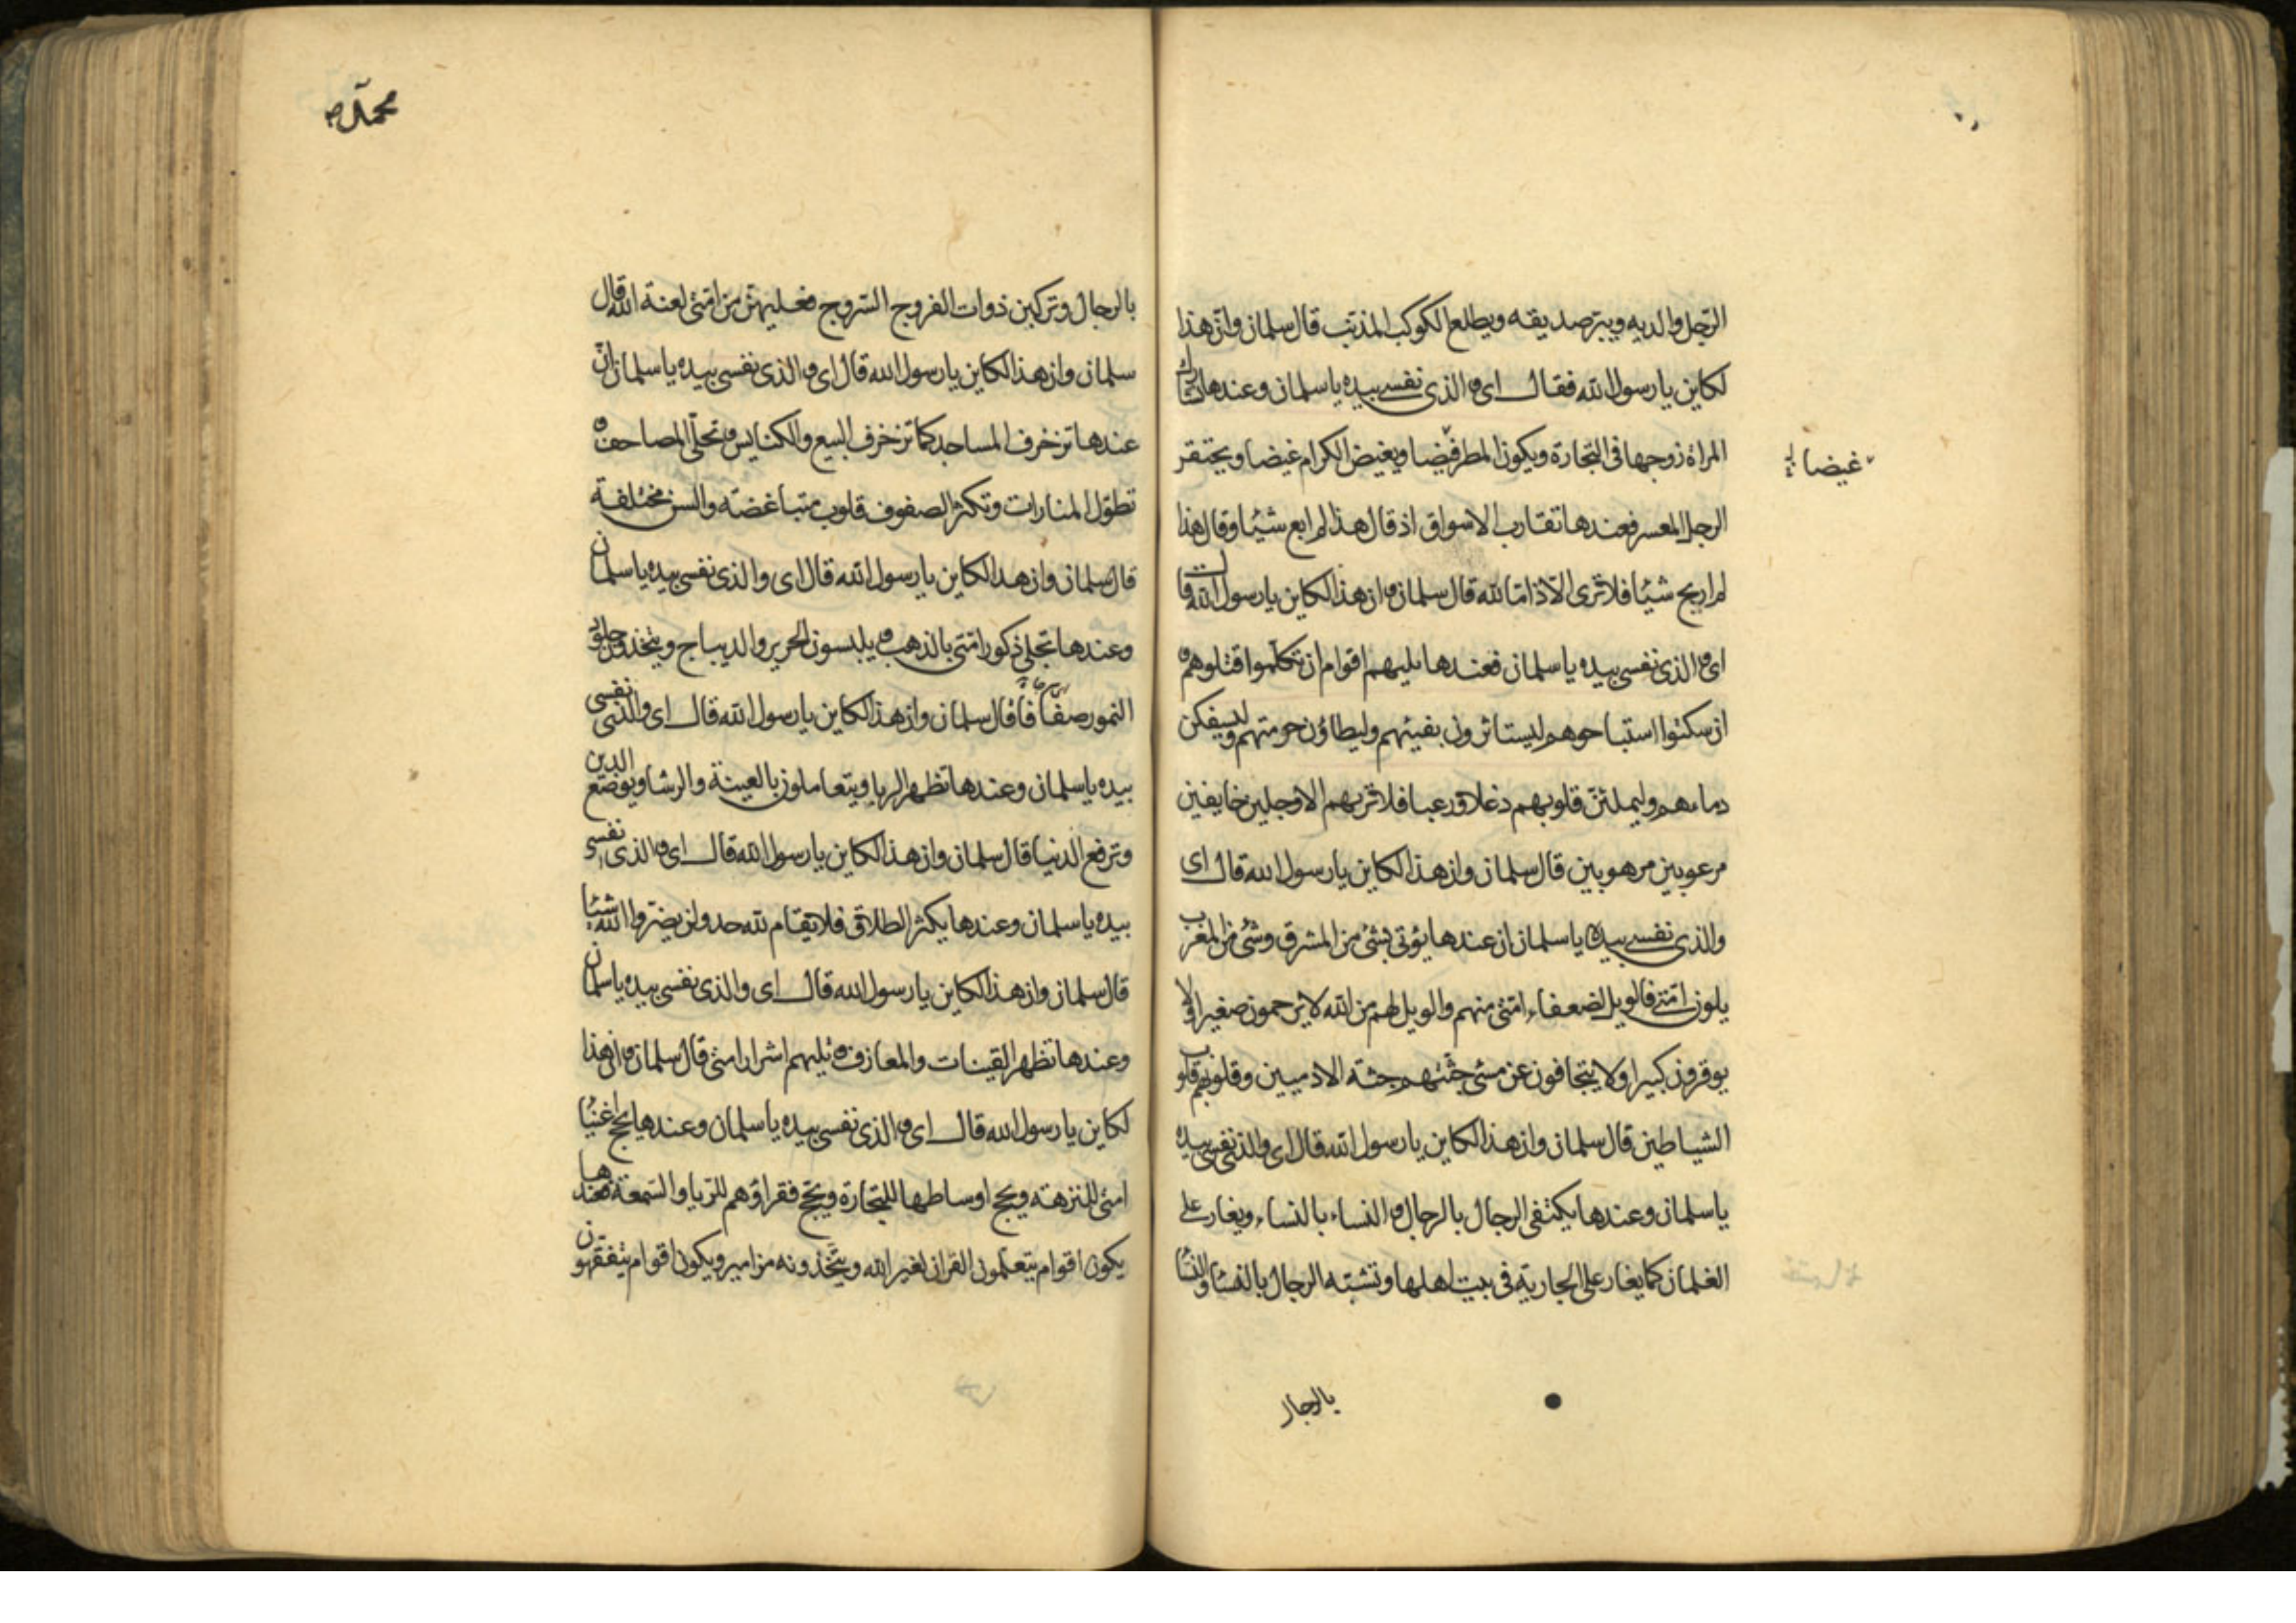 الرّجل والديه ويبرّ صديقه ويطلع الكوكب المذنّب قال سلمان وانّ هذا
لكاين يا رسول الله فقال اى والذى نفسى بيده يا سلمان وعندها تشارك
المراة زوجها فى التجارة ويكون المطر قيضا ويغيض الكرام غيضا ويحتقر
غيضا
الرجل المعسر فعندها تقارب الاسواق اذ قال هذا لم ابع شيئا وقال هذا
لم اربح شيئا فلا ترى الّا ذامّا لله قال سلمان وان هذا لكاين يا رسول الله قال
اى والذى نفسى بيده يا سلمان فعندها يليهم اقوام ان تكلّموا قتلوهم و
ان سكتوا استباحوهم ليستاثرون بفيئهم وليطاؤن حرمتهم وليسفكن
دماءهم وليملئنّ قلوبهم دغلا ورعبا فلا تريهم الا وجلين خايفين
مرعوبين مرهوبين قال سلمان وان هذا لكاين يا رسول الله قال اى
والذى نفسى بيده يا سلمان ان عندها يؤتى بشئ من المشرق وشئ من المغرب
يلون امّتى فالويل لضعفاء امّتى منهم والويل لهم من الله لا يرحمون صغيرا ولا
يوقرون كبيرا ولا يتجافون عن مسئ جثّتهم جثة الادميين وقلوبهم قلوب
الشياطين قال سلمان وان هذا لكاين يا رسول الله قال اى والذى نفسى بيده
يا سلمان وعندها يكتفى الرجال بالرجال والنساء بالنساء ويغار على
الغلمان كما يغار على الجارية فى بيت اهلها وتشبّه الرجال بالنساء والنسا
بالرجال
محمّد ص
بالرجال وتركبن ذوات الفروج السّروج فعليهنّ من امّتى لعنة الله قال
سلمان وان هذا لكاين يا رسول الله قال اى والذى نفسى بيده يا سلمان انّ
عندها تزخرف المساجد كما تزخرف البيع والكنايس وتحلّى المصاحف و
تطوّل المنارات وتكثر الصفوف قلوب متباغضة والسن مختلفة
قال سلمان وان هذا لكاين يا رسول الله قال اى والذى نفسى بيده يا سلمان
وعندها تحلى ذكور امّتى بالذهب ويلبسون الحرير والديباج ويتّخذون جلود
النمور صفافا قال سلمان وان هذا لكاين يا رسول الله قال اى والذى نفسى
بيده يا سلمان وعندها تظهر الربا ويتعاملون بالعينة والرشا ويوضع الدين
وترفع الدنيا قال سلمان وان هذا لكاين يا رسول الله قال اى والذى نفسى
بيده يا سلمان وعندها يكثر الطلاق فلا يقام لله حد ولن يضرّوا الله شيئا
قال سلمان وان هذا لكاين يا رسول الله قال اى والذى نفسى بيده يا سلمان
وعندها تظهر القينات والمعازف ويليهم اشرار امتى قال سلمان وان هذا
لكاين يا رسول الله قال اى والذى نفسى بيده يا سلمان وعندها يحج اغنيا
امتى للنزهة ويحج اوساطها للتجارة ويحجّ فقراؤهم للريا والسّمعة فعندها
يكون اقوام يتعلمون القران لغير الله ويتّخذونه مزامير ويكون اقوام يتفقهون